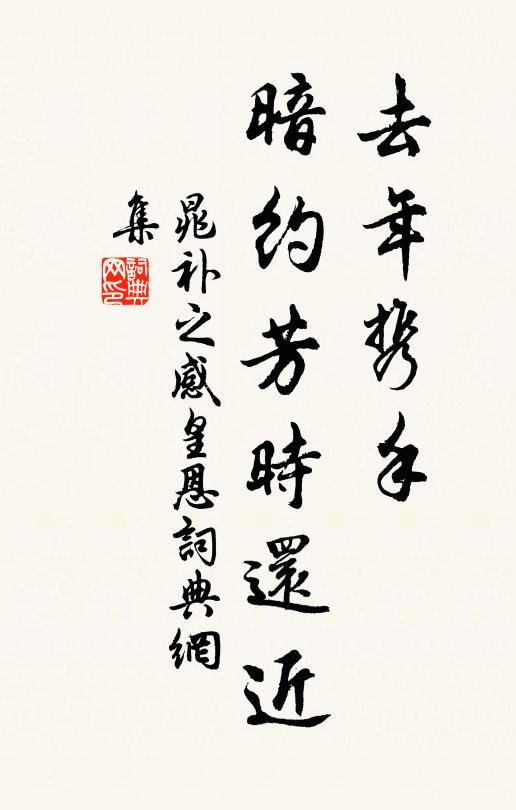 去年携手
暗約芳時還近
晁补之感皇恩詞典網
集
詞典
网印